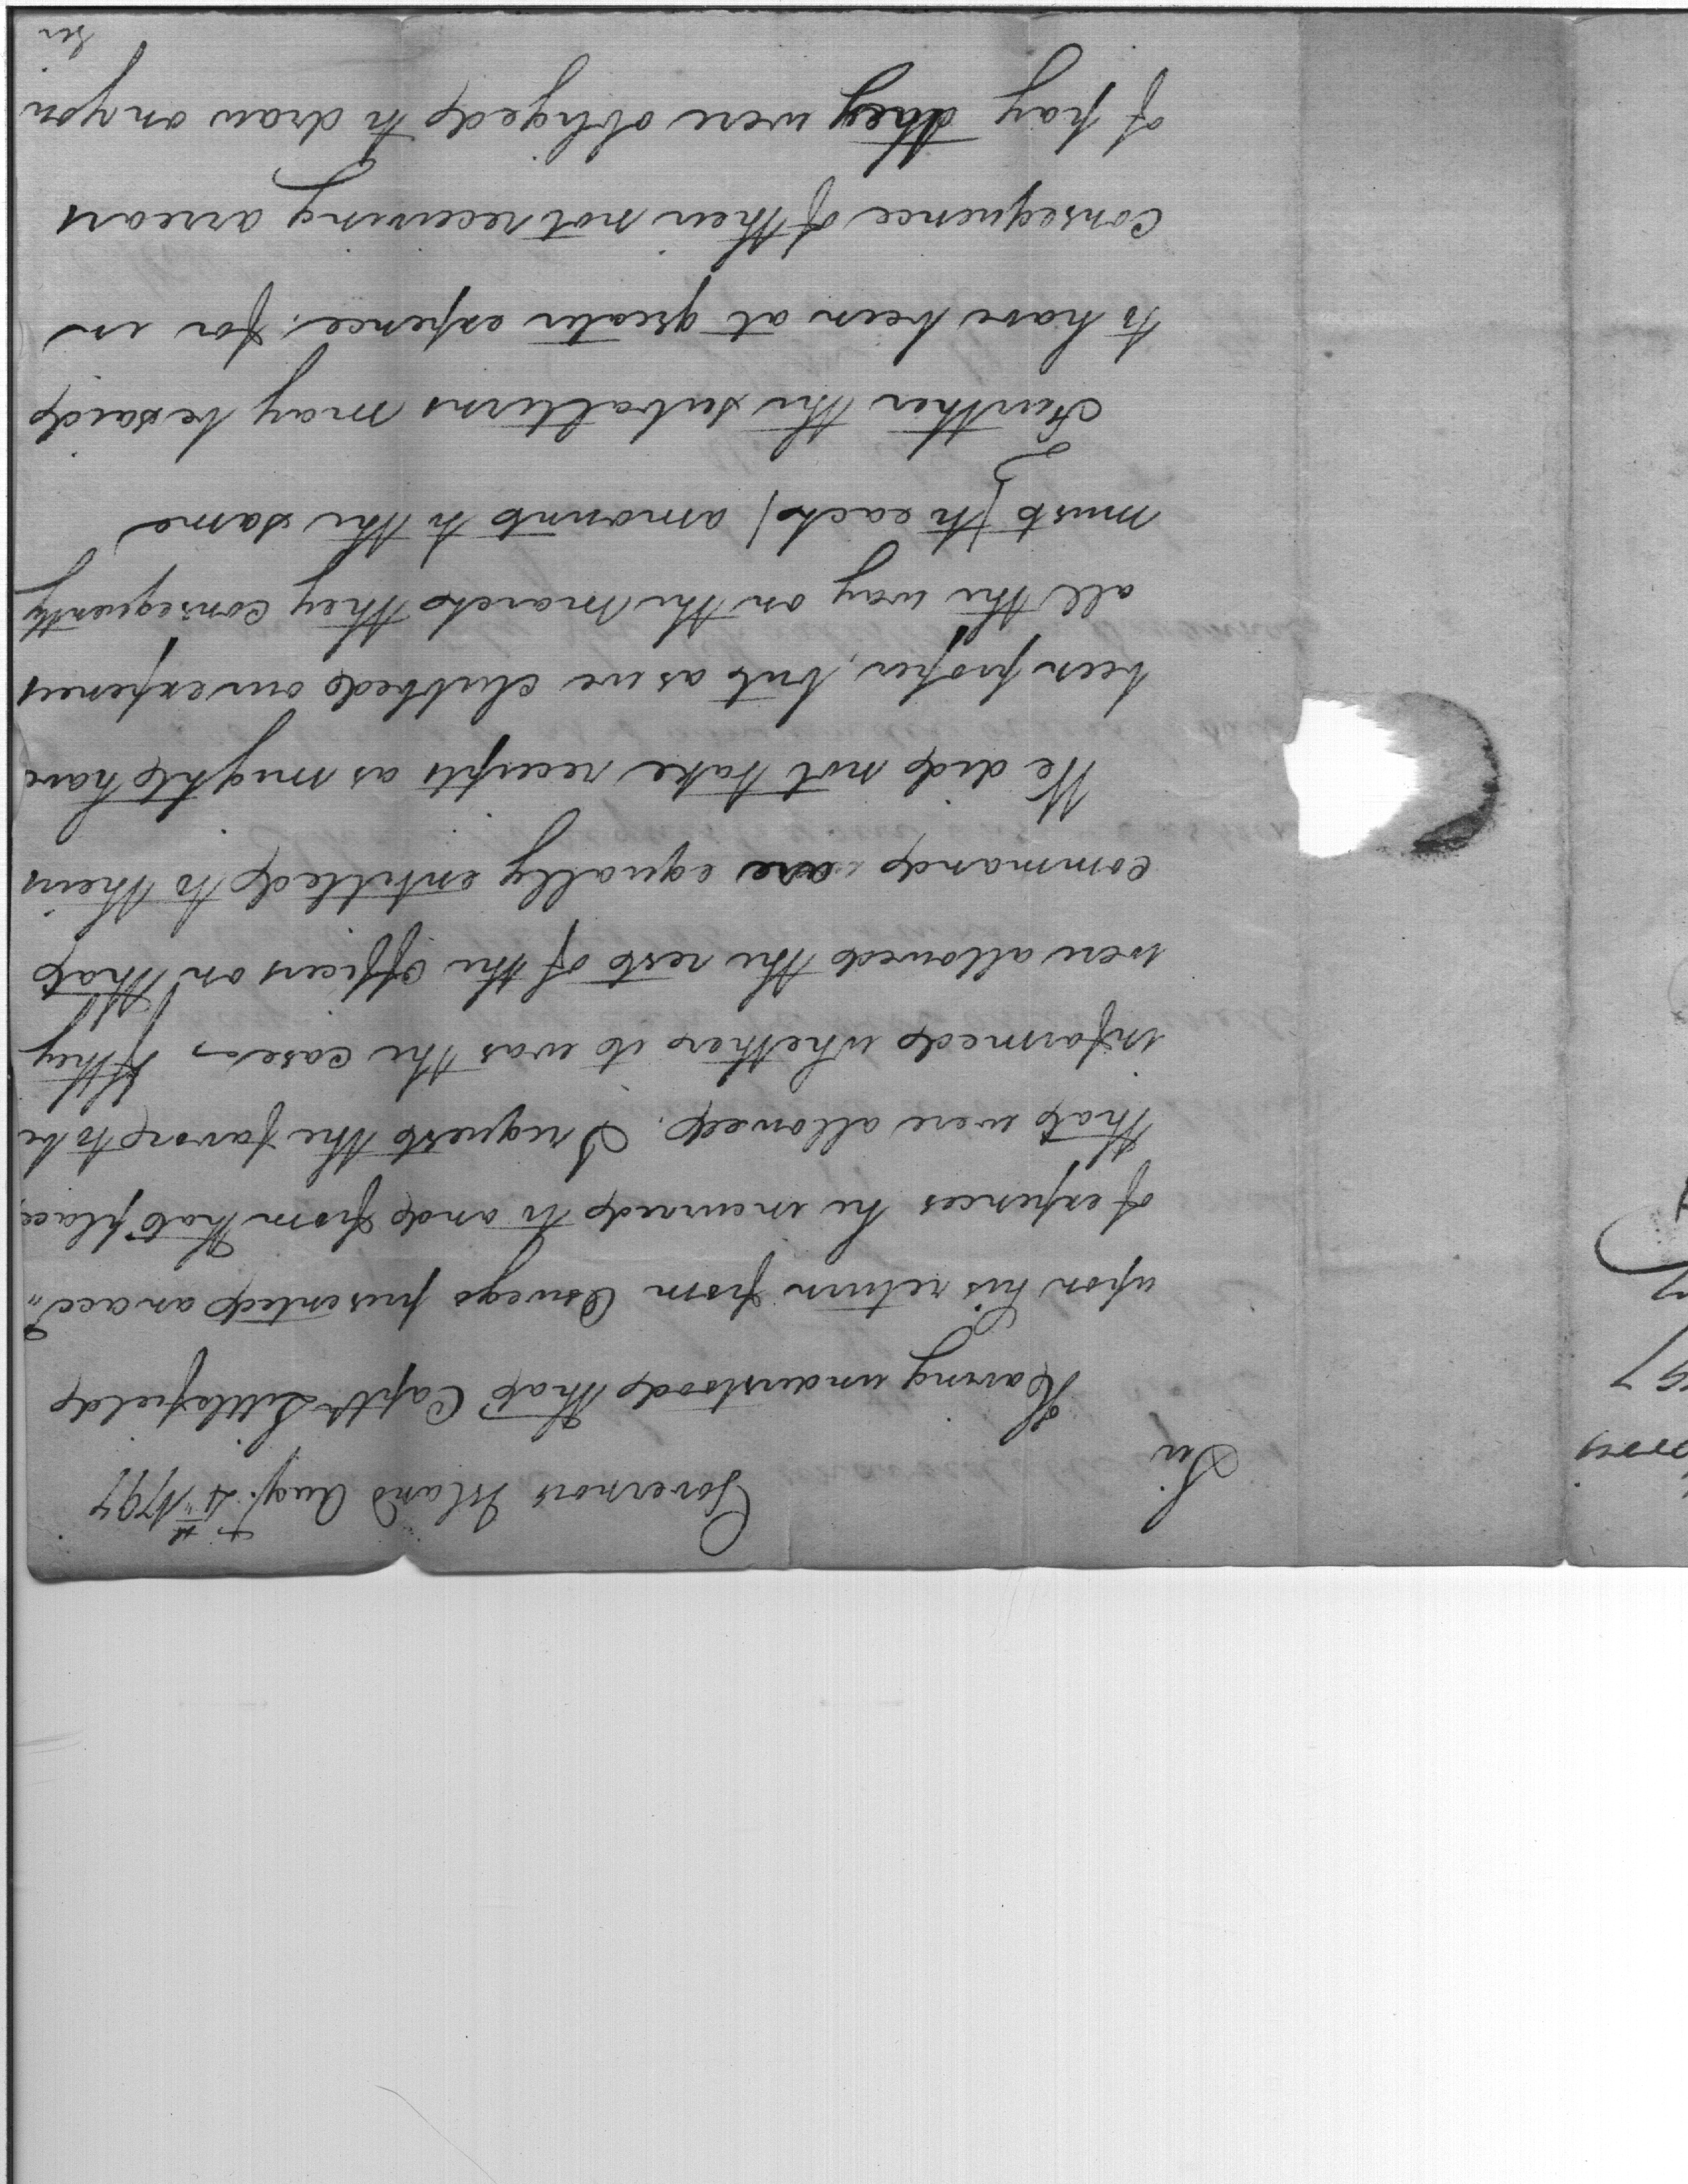 Governors Island Aug.t 4th 1797
Sir
Having understood that Capt. Littlefield
upon his return from Oswego presented an acct.
of expences he incurred to and from that place,
that were allowed. I request the favor to be
informed whether it was the case. If they
were allowed the rest of the officers on that
command are equally entitled to theirs
We did not take receipts as might have
been proper, but as we clubbed our expences
all the way on the march they consequently
must (to each) amount to the same
Further the subalterns may be said
to have been at greater expence. for in
consequence of their not receiving arrears
of pay they were obliged to draw on you
for